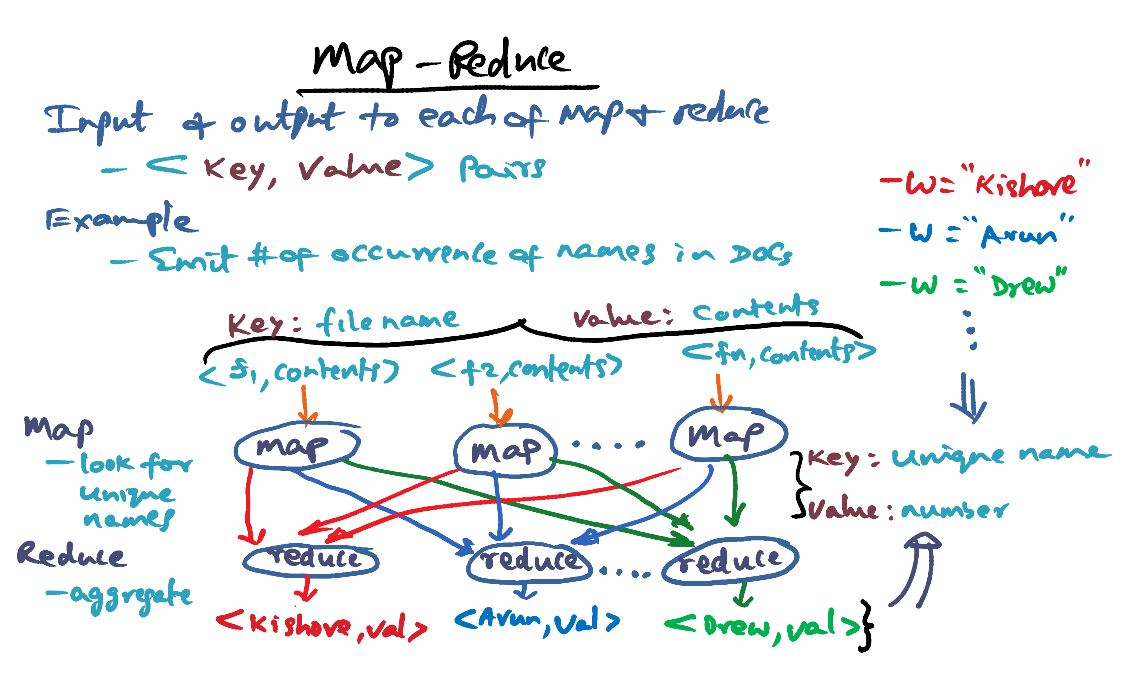 Map - Reduce
Input & output to each of map & reduce
- < Key, Value > Pairs
Example
- Emit # of occurrence of names in DOCs
- W = "Kishore"
- W = "Arun"
- W = "Drew"
Key: file name
Value: contents
<f1, contents>
<f2, contents>
<fn, contents>
Map
- look for
unique
names
map
map
map
Key: unique name
Value: number
Reduce
- aggregate
reduce
reduce
reduce
<Kishore, val>
<Arun, val>
<Drew, val>